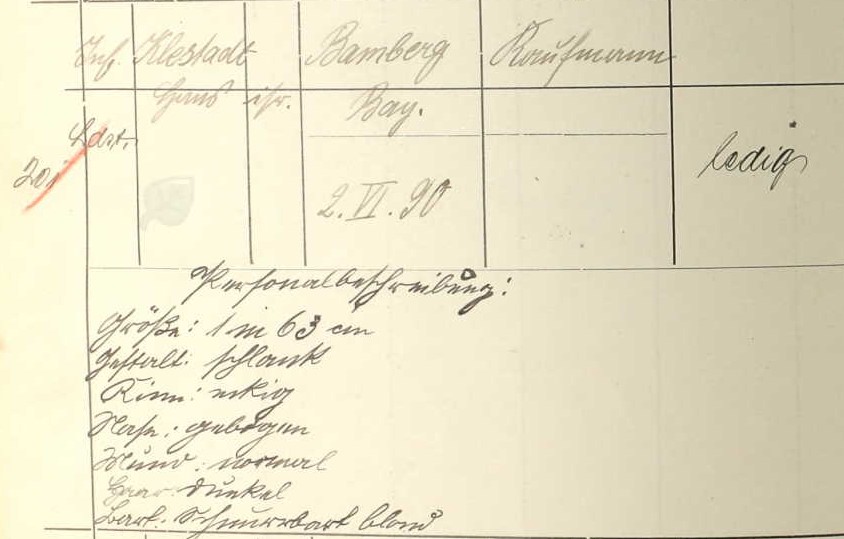 Inf. Klestadt Bamberg Kaufmann
Hans isr. Bay.
Ldst. ledig
2. VI. 90
Personalbeschreibung:
Größe: 1 m 63 cm
Gestalt: schlank
Kinn: eckig
Nase: gebogen
Mund: normal
Haar: dunkel
Bart: Schnurrbart blond